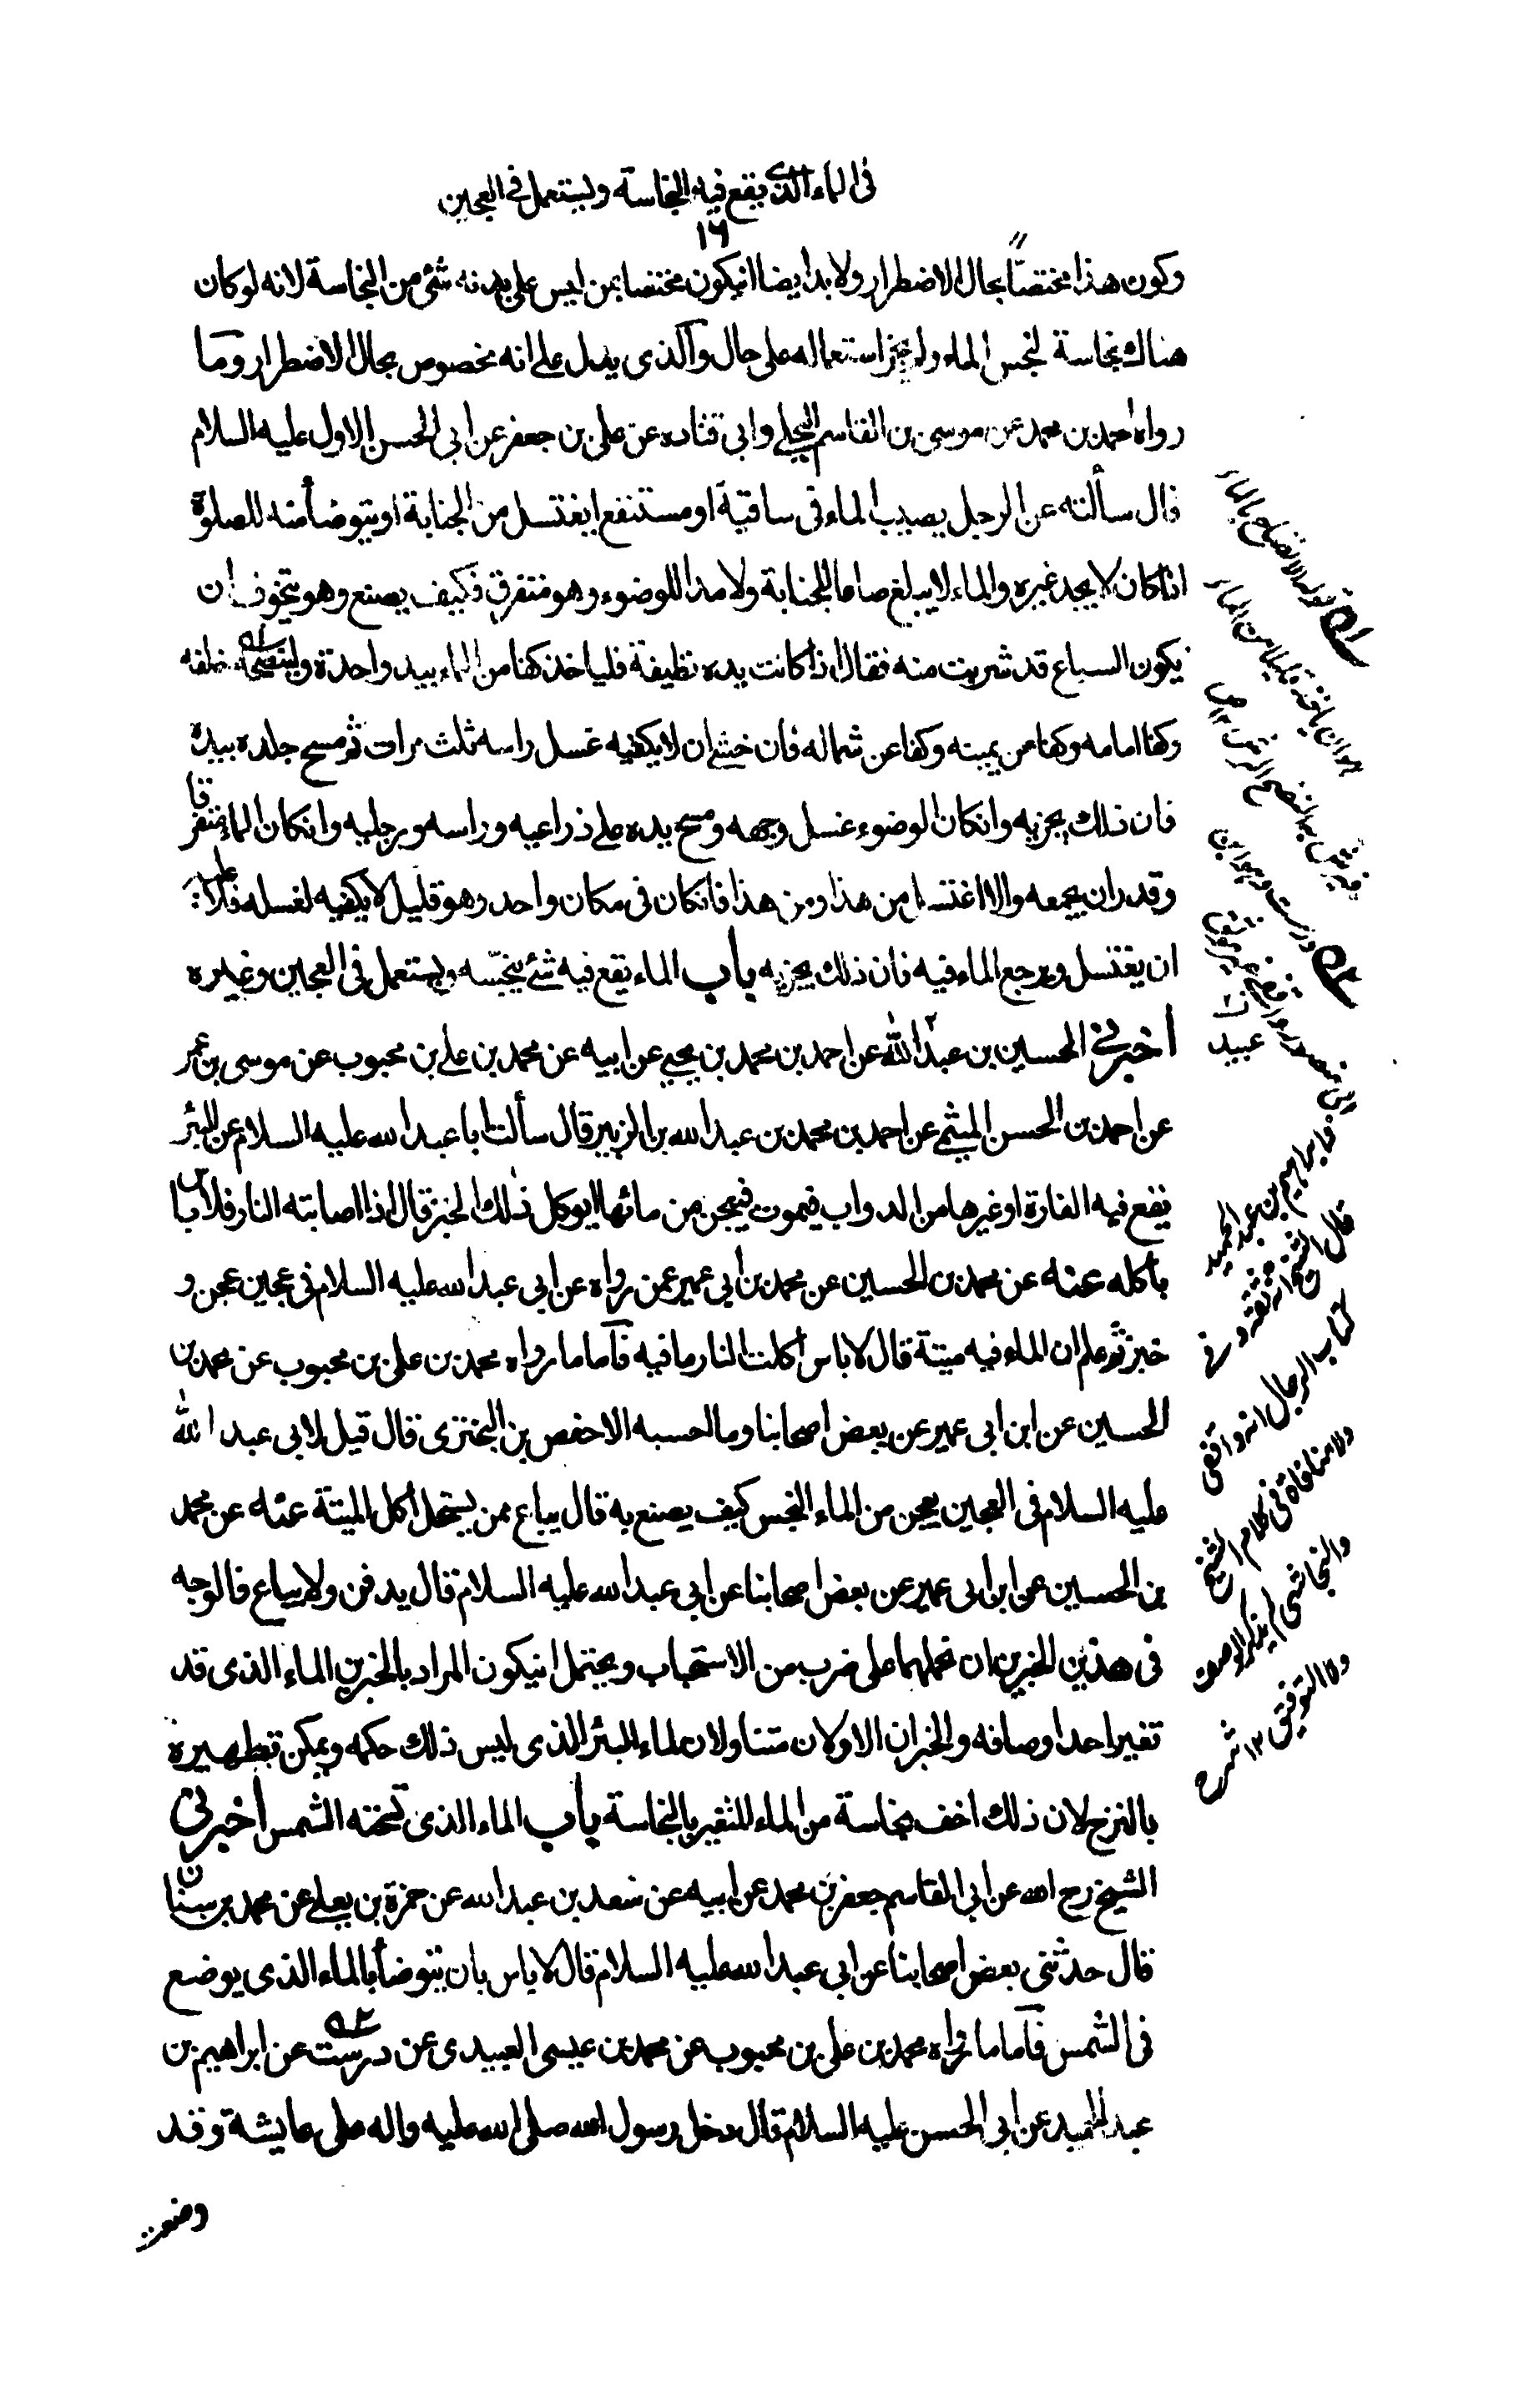 فى الماء الذى يقع فيه النجاسة ويستعمل فى العجين
١٦
ويكون هذا مختصاً بحال الاضطرار ولا بد ايضا انيكون مختصا بمن ليس على بدنه شئ من النجاسة لانه لو كان
هناك نجاسة لنجس الماء ولم يجز استعماله على حال والذى يدل على انه مخصوص بحال الاضطرار وما
رواه احمد بن محمد عن موسى بن القاسم البجلى وابى قتاده عن على بن جعفر عن ابى الحسن الاول عليه السلام
قال سألته عن الرجل يصيب الماء فى ساقية او مستنقع ايغتسل من الجنابة او يتوضأ منه للصلوة
اذا كان لا يجد غيره والماء لا يبلغ صاعا للجنابة ولا مدا للوضوء وهو متفرق فكيف يصنع وهو يتخوف ان
يكون السباع قد شربت منه فقال اذا كانت يده نظيفة فلياخذ كفا من الماء بيد واحدة ولينضحه خلفه
وكفا امامه وكفا عن يمينه وكفا عن شماله فان خشى ان لا يكفيه غسل راسه ثلث مرات ثم مسح جلده بيده
فان ذلك يجزيه وانكان الوضوء غسل وجهه ومسح يده على ذراعيه وراسه ورجليه وانكان الماء متفرقا
وقدر ان يجمعه والا اغتسل من هذا ومن هذا فانكان فى مكان واحد وهو قليل لا يكفيه لغسله فلا عليه
ان يغتسل ويرجع الماء فيه فان ذلك يجزيه باب الماء يقع فيه شئ ينجّسه ويستعمل فى العجين وغيره
اخبرنى الحسين بن عبد الله عن احمد بن محمد بن يحيى عن ابيه عن محمد بن على بن محبوب عن موسى بن عمر
عن احمد بن الحسن الميثمى عن احمد بن محمد بن عبد الله بن الزبير قال سألت ابا عبد الله عليه السلام عن البئر
يقع فيه الفارة او غيرها من الدواب فيموت فيعجن من مائها ايوكل ذلك الخبز قال اذا اصابته النار فلا باس
بأكله عنه عن محمد بن الحسين عن محمد بن ابى عمير عمن رواه عن ابى عبد الله عليه السلام فى عجين عجن و
خبز ثم علم ان الماء فيه ميتة قال لا باس اكلت النار ما فيه فاما ما رواه محمد بن على بن محبوب عن محمد بن
الحسين عن ابن ابى عمير عن بعض اصحابنا وما احسبه الا حفص بن البخترى قال قيل لابى عبد الله
عليه السلام فى العجين يعجن من الماء النجس كيف يصنع به قال يباع ممن يستحل اكل الميتة عنه عن محمد
بن الحسين عن ابن ابى عمير عن بعض اصحابنا عن ابى عبد الله عليه السلام قال يدفن ولا يباع فالوجه
فى هذين الخبرين ان نحملهما على ضرب من الاستحباب ويحتمل انيكون المراد بالخبرين الماء الذى قد
تغير احد اوصافه والخبران الاولان متناولان لماء البئر الذى ليس ذلك حكمه ويمكن تطهيره
بالنزح لان ذلك اخف نجاسة من الماء المتغير بالنجاسة باب الماء الذى تسخنه الشمس اخبرنى
الشيخ رح الله عن ابى القاسم جعفر بن محمد عن ابيه عن سعد بن عبد الله عن حمزة بن يعلى عن محمد بن سنان
قال حدثنى بعض اصحابنا عن ابى عبد الله عليه السلام قال لا باس بان يتوضأ بالماء الذى يوضع
فى الشمس فاما ما رواه محمد بن على بن محبوب عن محمد بن عيسى العبيدى عن درست عن ابراهيم بن
عبد الحميد عن ابى الحسن عليه السلام قال دخل رسول الله صلى الله عليه واله على عايشة وقد
وضعت
عبيد
ابراهيم بن عبد الحميد
قال الشيخ انه ثقة وفى
كتاب الرجال انه واقفى
ولا منافاة فى كلام الشيخ
والنجاشى